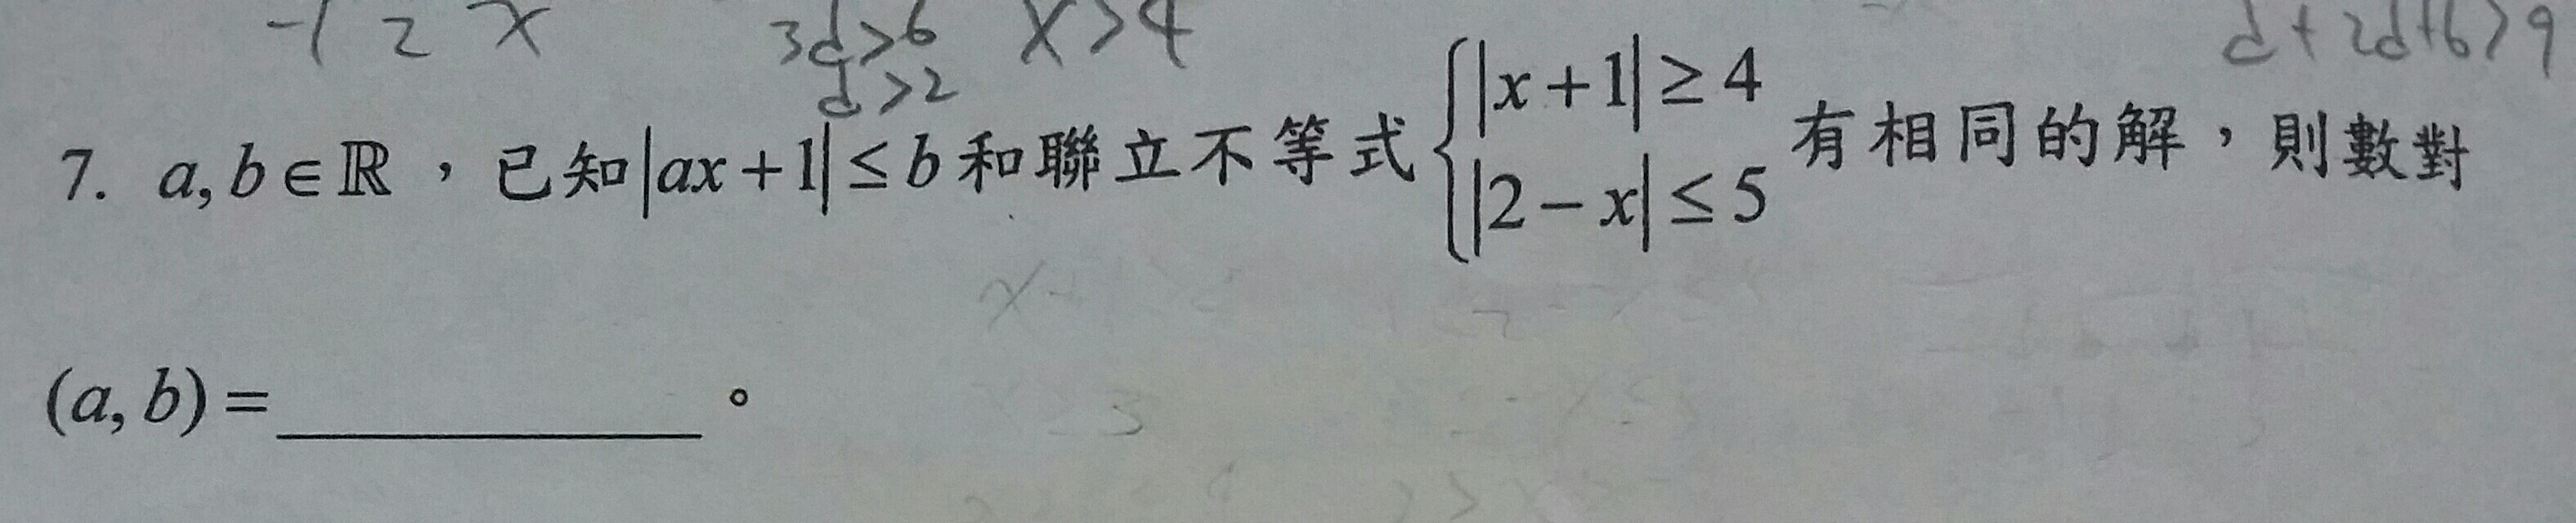 -1 ≥ x 3d>6 x>4 d+2d+6>9
d>2
7. a, b ∈ ℝ ,已知 |ax+1| ≤ b 和聯立不等式 { |x+1| ≥ 4 有相同的解,則數對
|2-x| ≤ 5
(a, b) = ________ 。